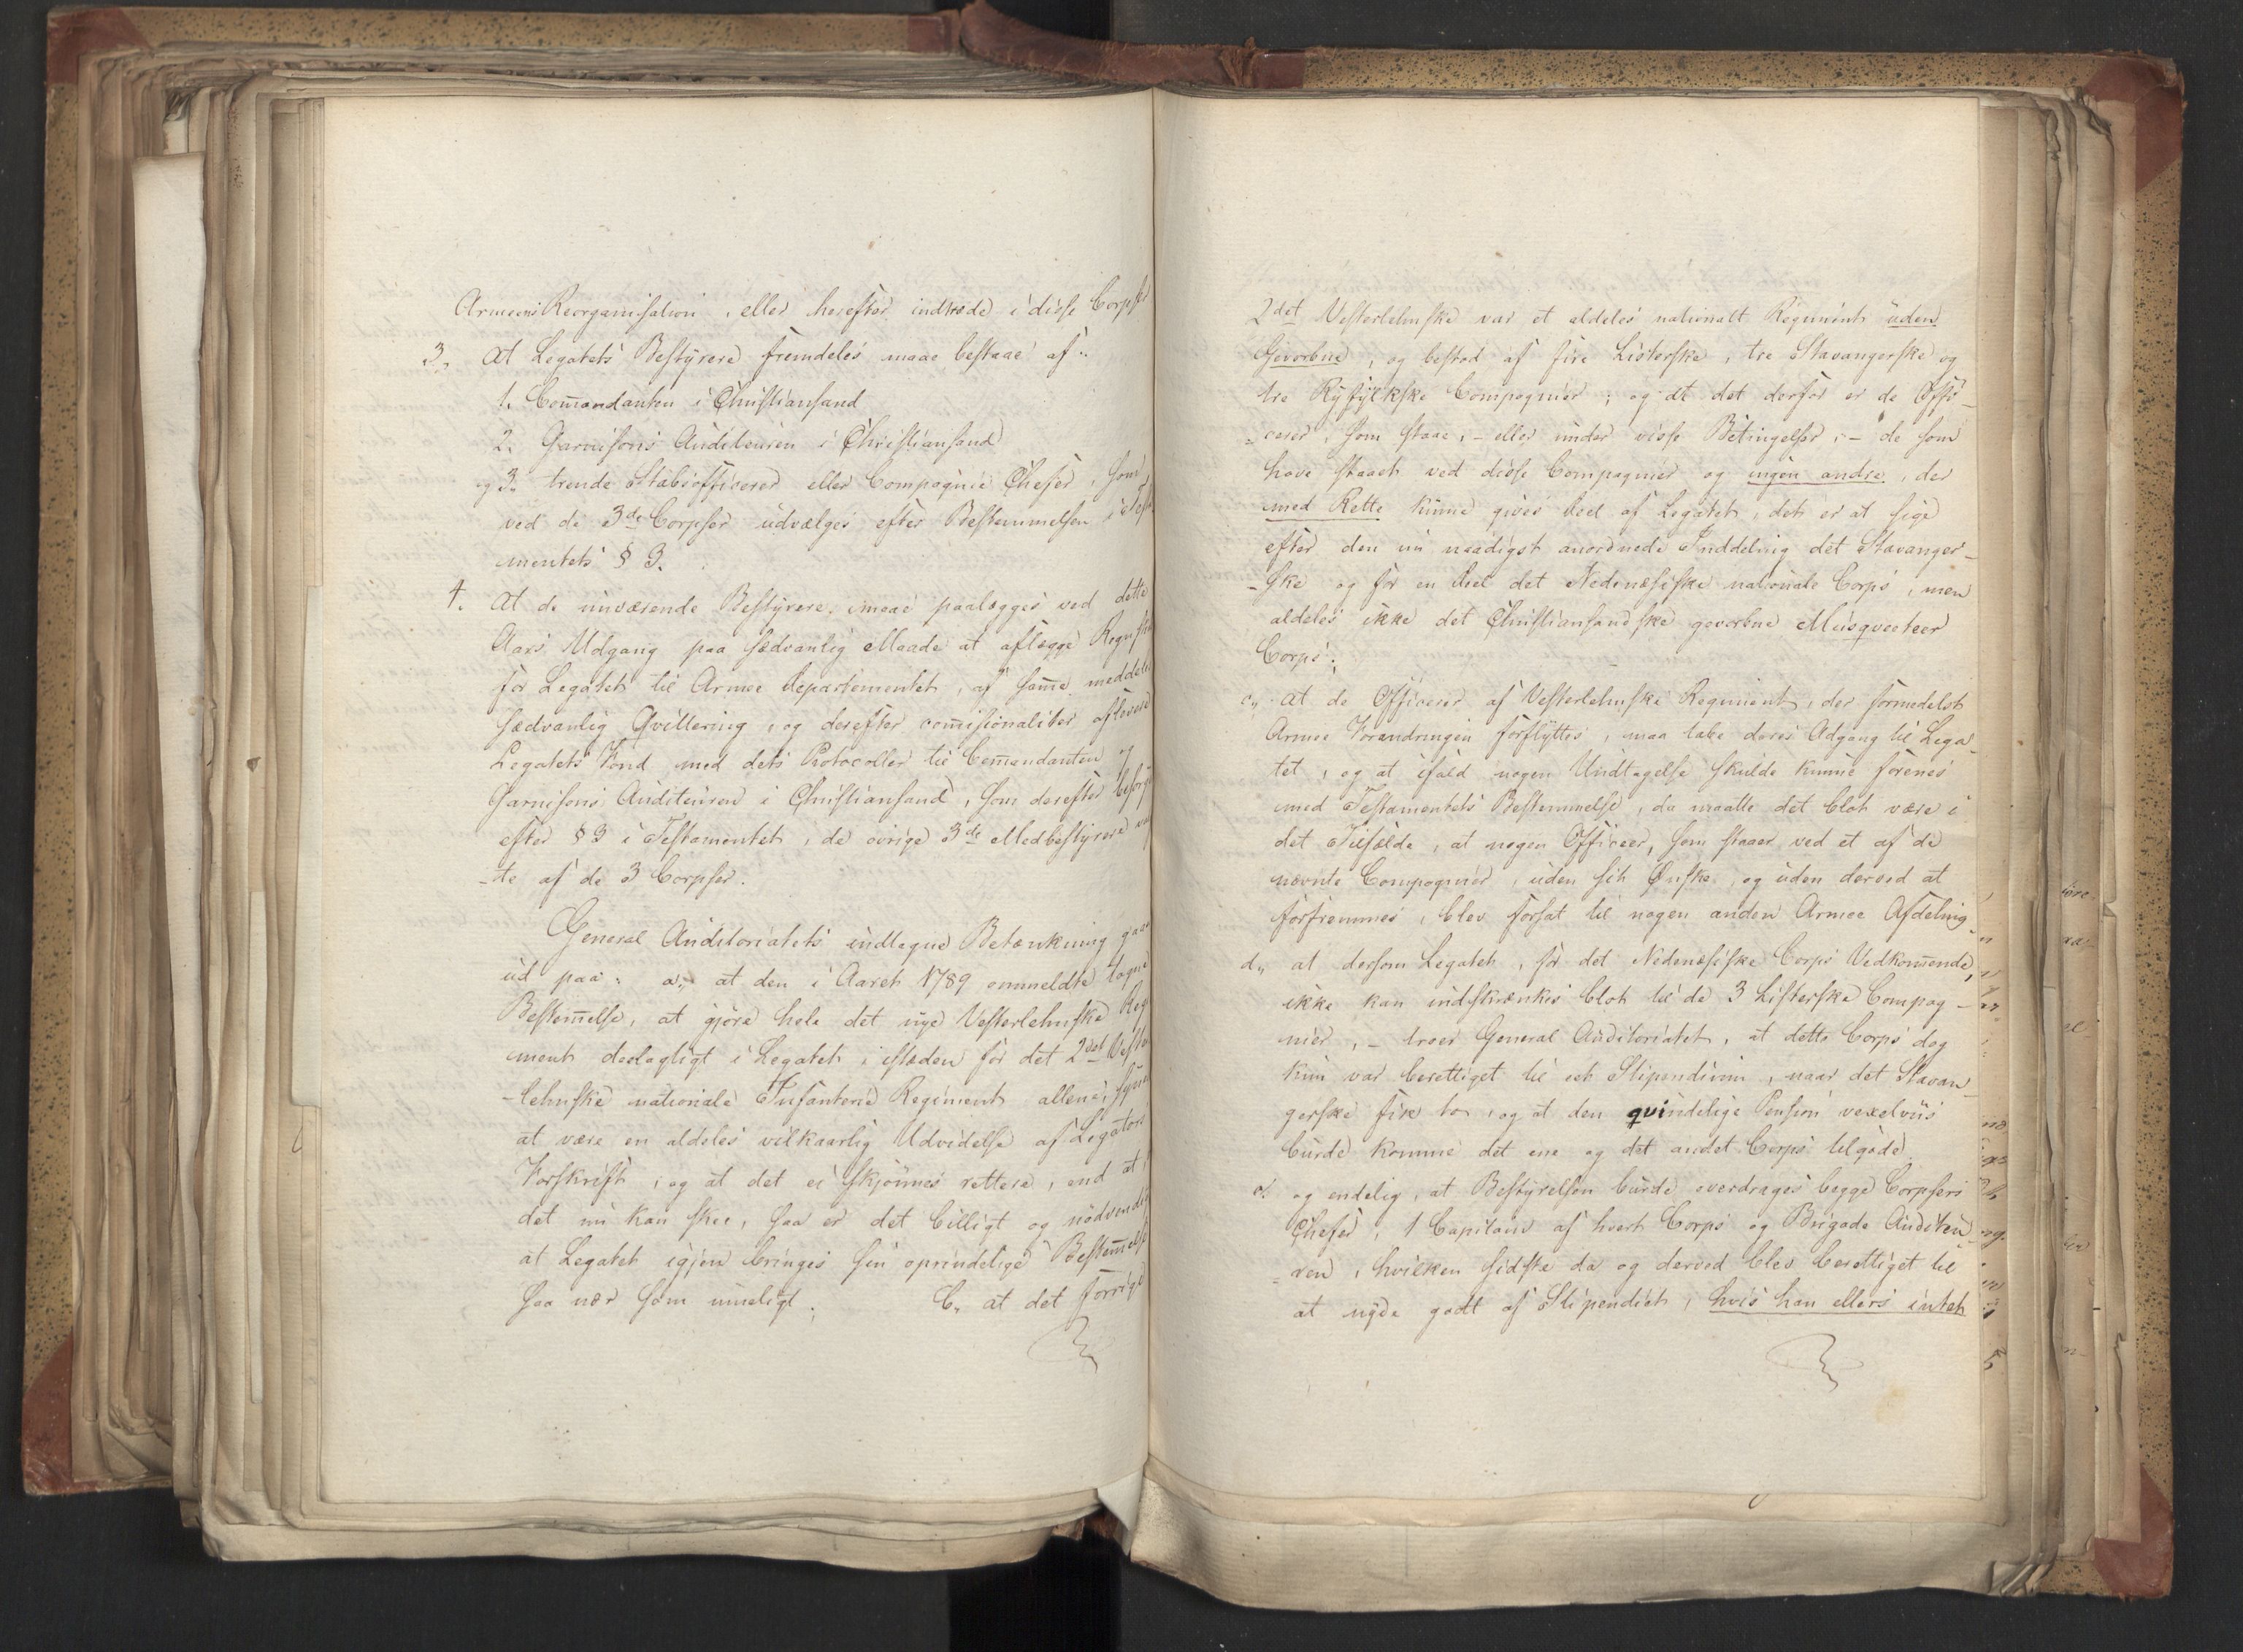 Armeens Reorganisation, eller herefter indtræde i disse Corpser
3, At Legatets Bestyrere fremdeles maae bestaae af:
1. Com̄andanten i Christiansand
2. Garnisons Auditeuren i Christiansand
og 3, trende Stabsofficerer eller Compagnie Chefer, som
ved de 3de Corpser udvælges efter Bestemmelsen i Testa
mentets § 3.
4. At de nuværende Bestyrere, maae paalægges ved dette
Aars Udgang paa sædvanlig Maade at aflægge Regnskab
for Legatet til Armee Departementet, af sam̄e meddeles
sædvanlig Qvittering, og derefter com̄issionaliter aflevere
Legatets Fond med dets Protocoller til Com̄andanten og
Garnisons Auditeuren i Christiansand, som derefter besørge
efter § 3 i Testamentet, de øvrige 3de Medbestyrere val
-te af de 3 Corpser.
General Auditoriatets indtagne Betænkning gaaer
ud paa: a,, at den i Aaret 1789 ommeldte tagne
Bestem̄else, at gjöre hele det nye Vesterlehnske Regi
ment deelagtigt i Legatet istæden for det 2det Vester
-lehnske nationale Infanterie Regiment allene, synes
at være en aldeles vilkaarlig Udvidelse af Legators
Forskrift; og at det ei skjönnes rettere, end at
det nu kan skee, saa er det billigt og nödvendigt
at Legatet igjen bringes sin oprindelige Bestem̄else
saa nær som mueligt; b,, at det forrige
2det Vesterlehnske var et aldeles nationalt Regiment uden
Gevorbne, og bestod af fire Listerske, tre Stavangerske og
tre Ryfylkske Compagnier; og at det derfor er de Offi-
-cerer, som staae, - eller under visse Betingelser, - de som
have staaet ved disse Compagnier og ingen andre, der
med Rette kunne gives Deel af Legatet, det er at sige
efter den nu naadigst anordnede Inddeling det Stavanger-
-ske og for en Deel det Nedenæsiske nationale Corps, men
aldeles ikke det Christiansandske gevorbne Musqveteer
Corps;
c,, at de Officerer af Vesterlehnske Regiment, der formedelst
Armee Forandringen forflyttes, maa tabe deres Adgang til Lega-
tet, og at ifald nogen Undtagelse skulde kunne forenes
med Testamentets Bestemmelse, da maatte det blot være i
det Tilfælde, at nogen Officeer, som staaer ved et af de
nævnte Compagnier, uden sit Önske, og uden derved at
forfremmes, blev forsat til nogen anden Armee Afdeling
d,, at dersom Legatet, for det Nedenæsiske Corps Vedkom̄ende,
ikke kan indskrænkes blot til de 3 Listerske Compag-
nier, - troer General Auditoriatet, at dette Corps dog
kun var berettiget til eet Stipendium, naar det Stavan-
gerske fik to, og at den qvindelige Pension vexelviis
burde komme det ene og det andet Corps tilgode.
e. og endelig, at Bestyrelsen burde overdrages begge Corpsers
Chefer, 1 Capitain af hvert Corps og Brigade Auditeu-
-ren, hvilken sidste da og derved blev berettiget til
at nyde godt af Stipendiet, hvis han ellers intet